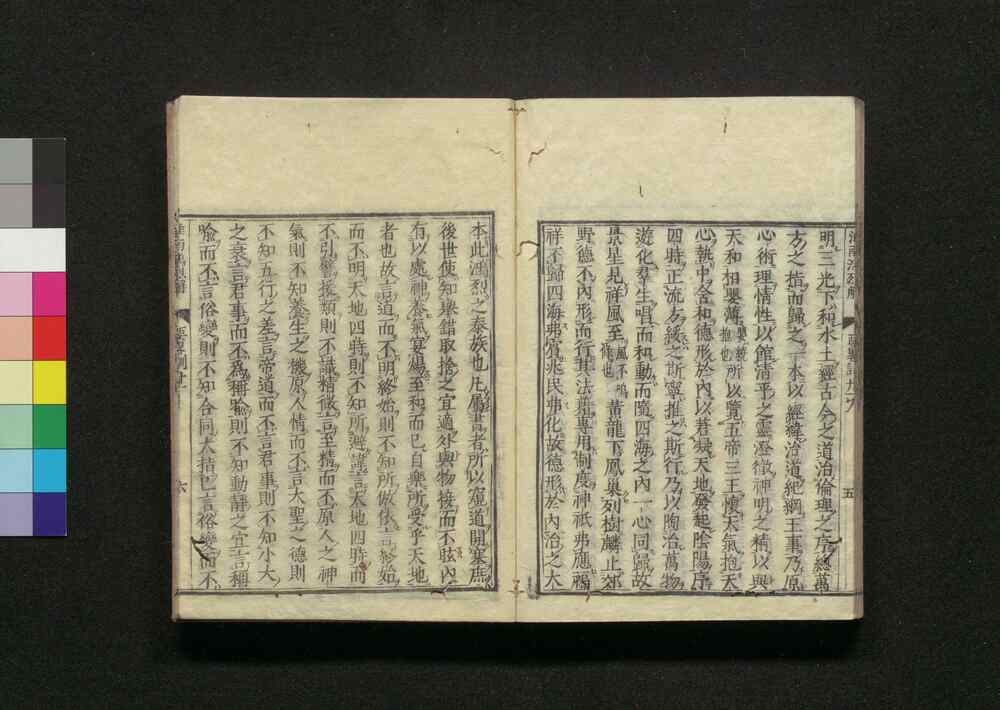 明三光下和水土經古今之道治倫理之序總萬
方之指而歸之一本以經緯治道紀綱王事乃原
心術理情性以館清平之靈澄徹神明之精以與
天和相嬰薄所以覽五帝三王懷天氣抱天
心執中含和德形於內以莙凝天地發起陰陽序
四時正流方綏之斯寧推之斯行乃以陶冶萬物
遊化群生唱而和動而隨四海之內一心同歸故
景星見祥風至黃龍下鳳巢列樹麟止郊
野德不內形而行其法藉專用制度神祇弗應福
祥不歸四海弗賓兆民弗化故德形於內治之大
五
本此鴻烈之泰族也凡屬書者所以窺道開塞庶
後世使知舉錯取捨之宜適外與物接而不眩內
有以處神養氣宴煬至和而已自樂所受乎天地
者也故言道而不明終始則不知所倣依言終始
而不明天地四時則不知所避諱言天地四時而
不引譬援類則不識精微言至精而不原人之神
氣則不知養生之機原人情而不言大聖之德則
不知五行之差言帝道而不言君事則不知小大
之衰言君事而不爲稱喻則不知動靜之宜言稱
喻而不言俗變則不知合同大指已言俗變而不
六